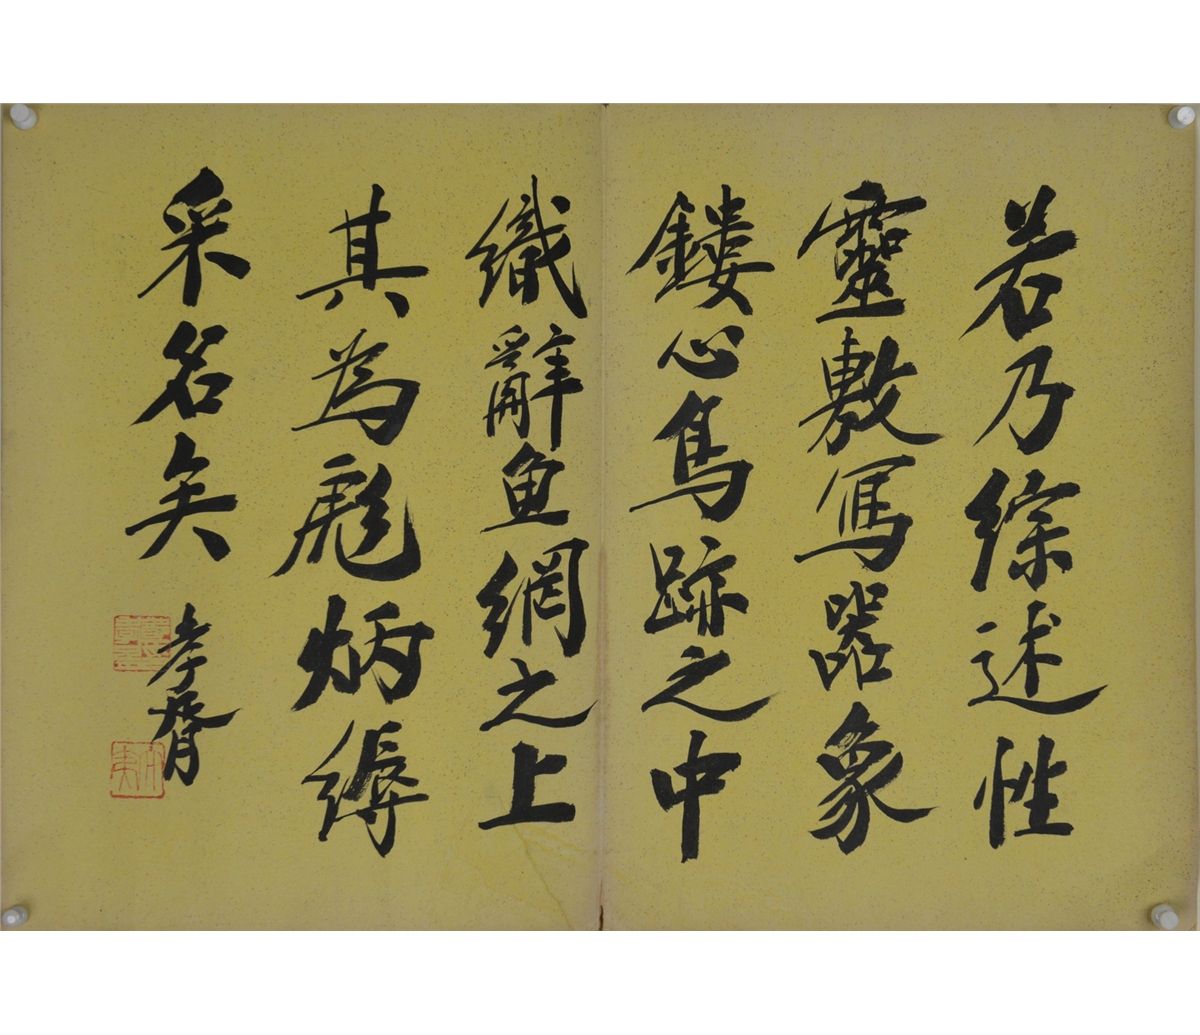 若乃綜述性
靈敷寫器象
鏤心鳥跡之中
織辭魚網之上
其為彪炳縟
采名矣
孝胥